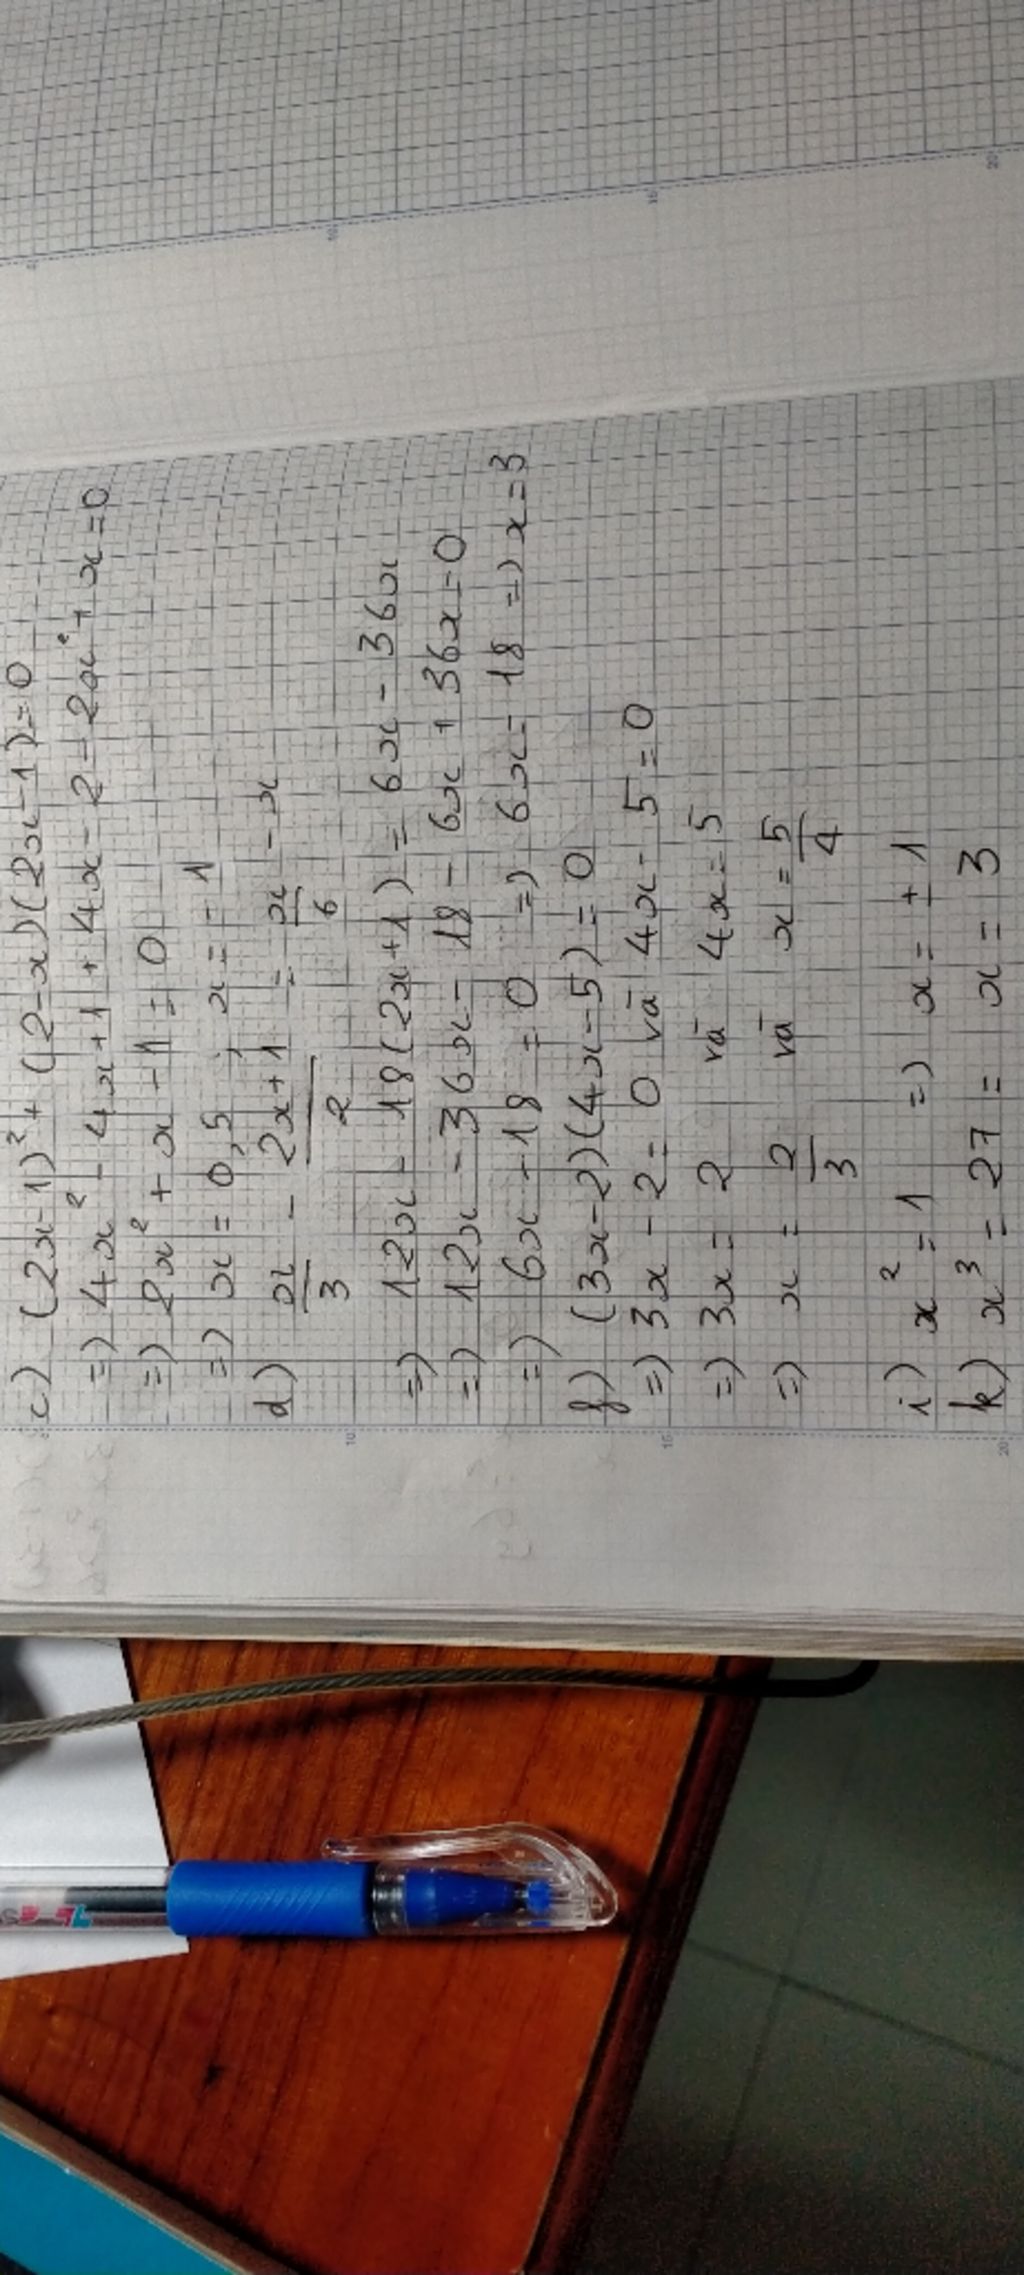 c) (2x-1)² + (2-x)(2x-1) = 0
=) 4x² - 4x + 1 + 4x - 2 - 2x² + x = 0
=) 2x² + x - 1 = 0
=) x = 0,5 ; x = -1
d) x/3 - 2x+1/2 = x/6 - x
=) 12x - 18(2x+1) = 6x - 36x
=) 12x - 36x - 18 - 6x + 36x = 0
=) 6x - 18 = 0 =) 6x = 18 =) x = 3
f) (3x-2)(4x-5) = 0
=) 3x - 2 = 0 và 4x - 5 = 0
=) 3x = 2 và 4x = 5
=) x = 2/3 và x = 5/4
i) x² = 1 =) x = ± 1
k) x³ = 27 = x = 3